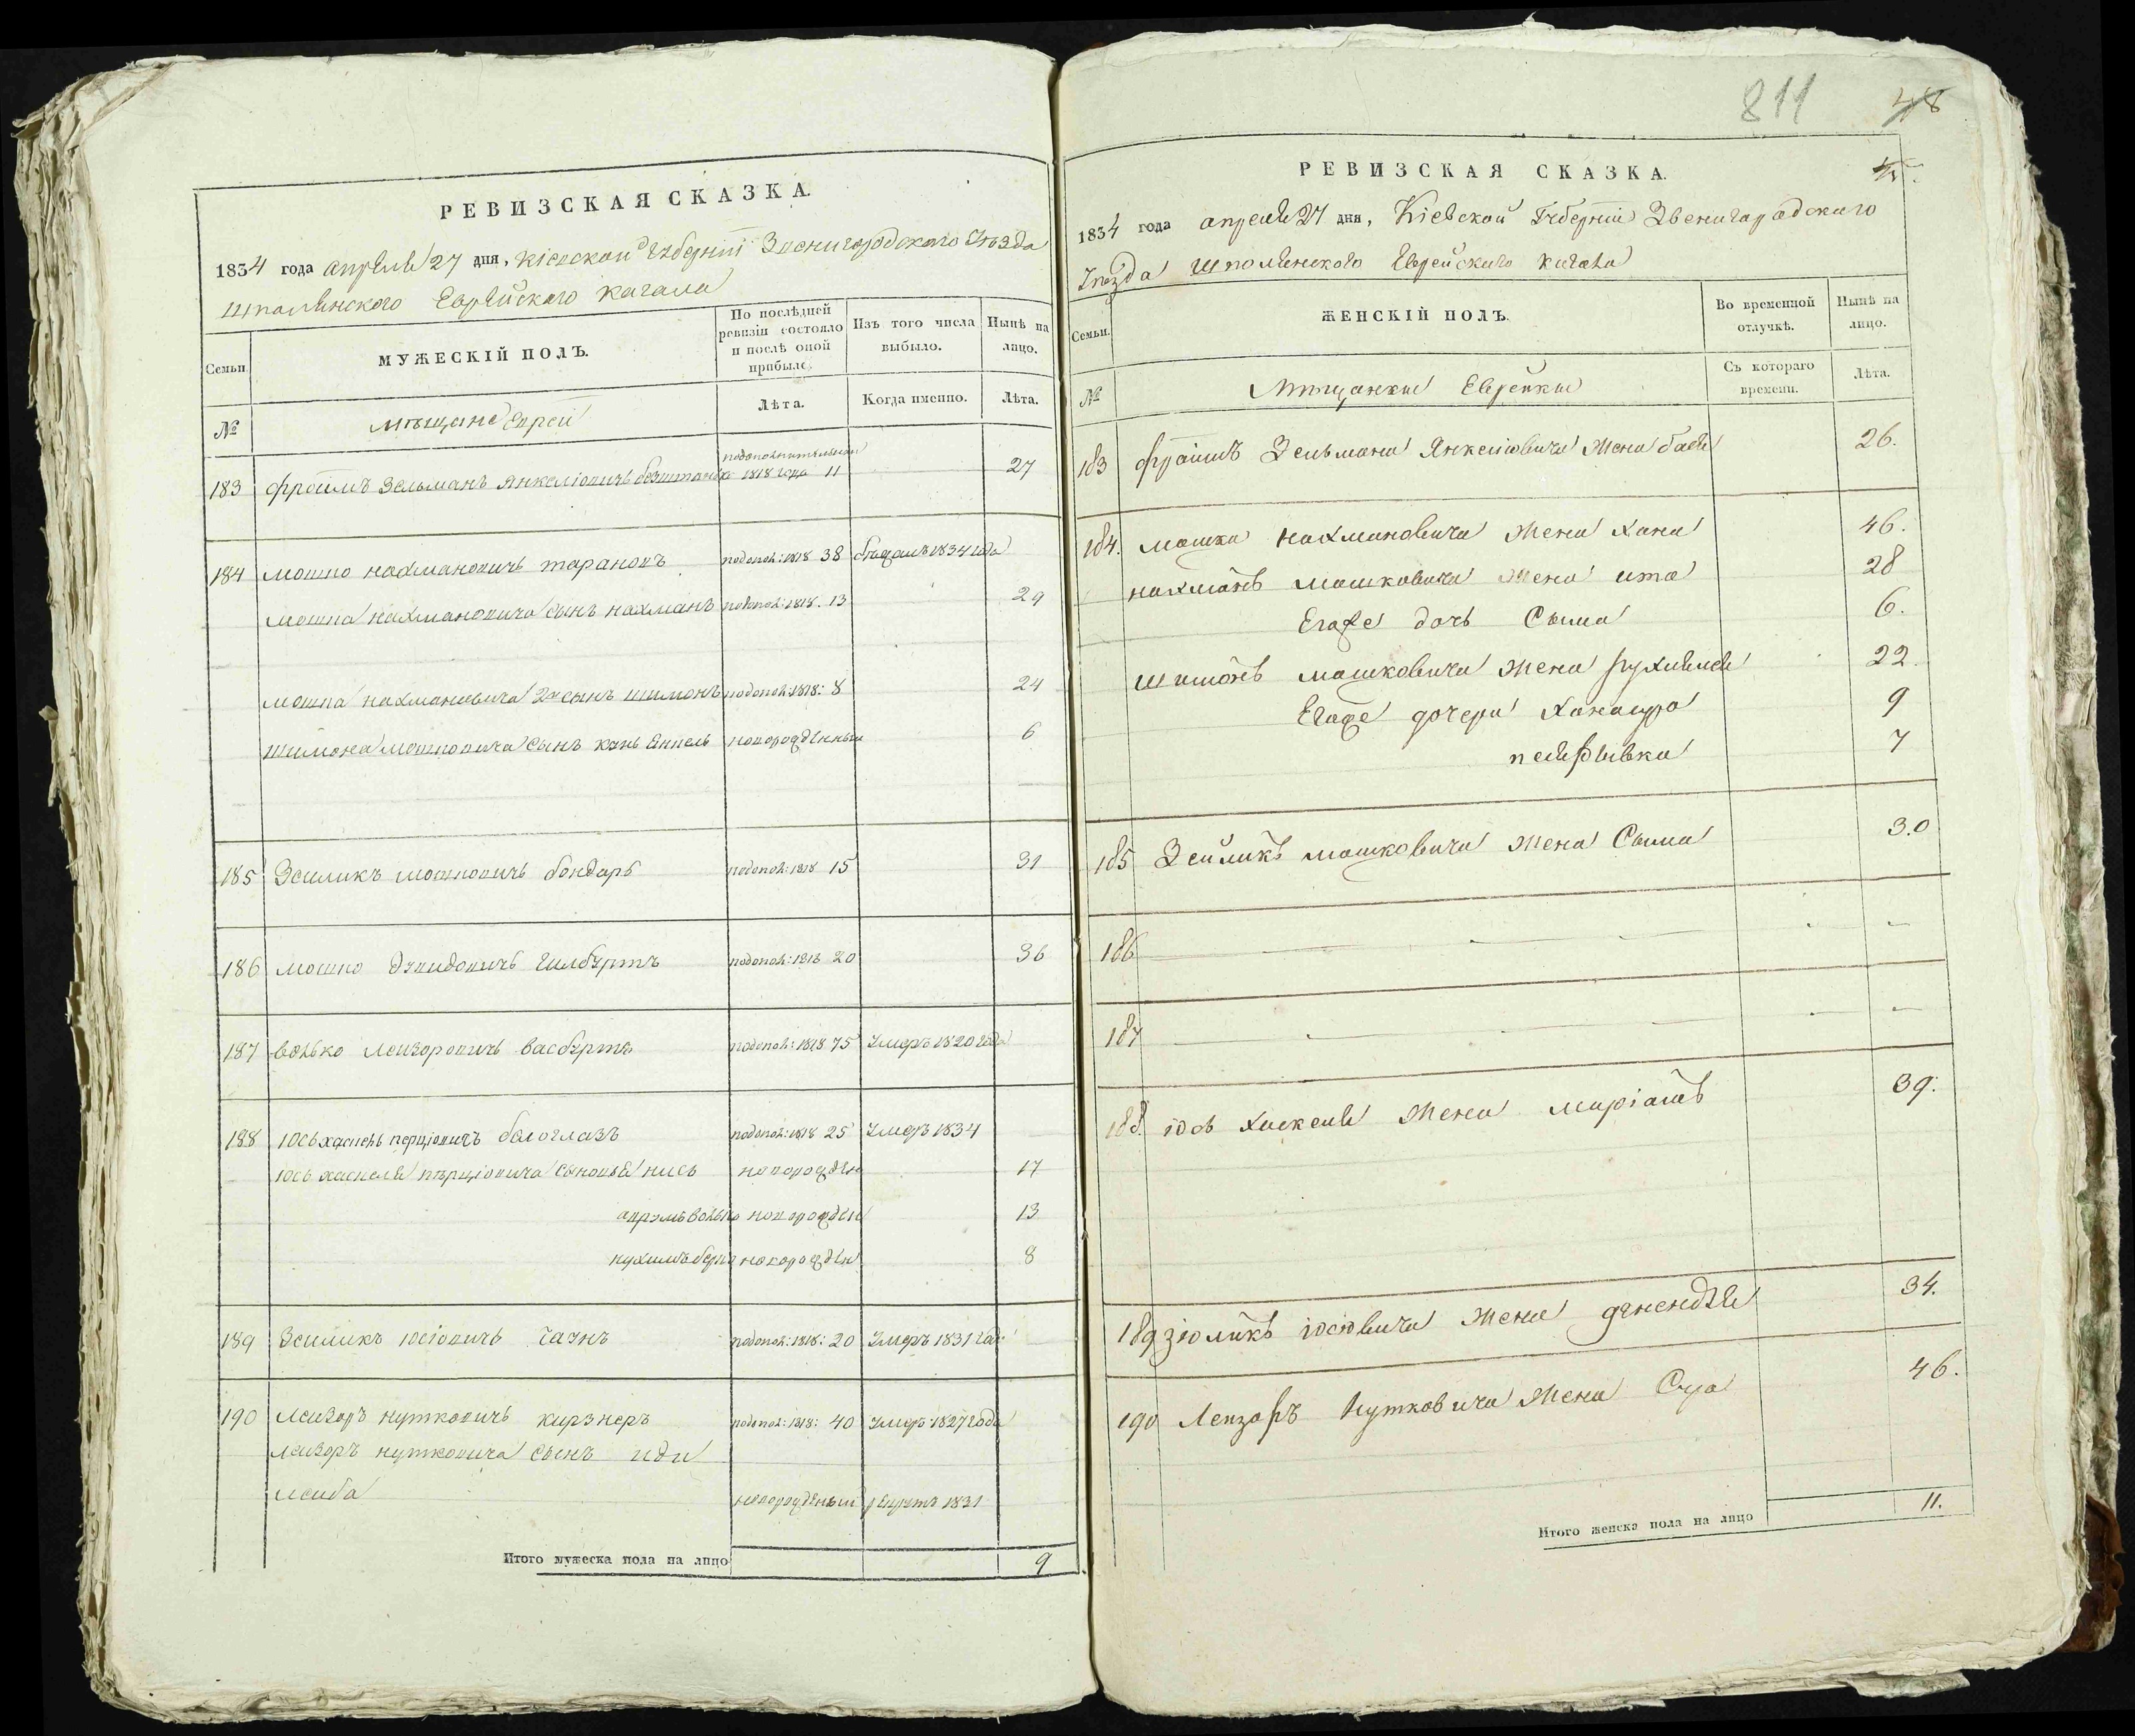 РЕВИЗСКАЯ СКАЗКА.
1834 года апреля 27 дня, Кіевской Губерніи Звенигородского Уезда
Шполянского Еврейского Кагала
Семьи.
МУЖЕСКІЙ ПОЛЪ.
По послѣдней ревизіи состояло и послѣ оной прибыло.
Изъ того числа выбыло.
Нынѣ на лицо.
№
мѣщане Евреи
Лѣта.
Когда именно.
Лѣта.
183 Фроимъ Зельманъ Янкеліовичъ 1818 года 11 27
184 Мошко Нахмановичъ Тарановъ подопол: 1818 38 1834 года
Мошка Нахмановича сынъ Нахманъ подопол: 1818. 13 29
Мошка Нахмановича 2й сынъ Шимонъ подопол: 1818: 8 24
Шимона Мошковича сынъ новорожденный 6
185 Зейликъ Мошковичъ Бондаръ подопол: 1818 15 31
186 Мошко Гилбуртъ подопол: 1818 20 36
187 Волько Лейзоровичъ Васбуртъ подопол: 1818 75 Умеръ 1820 года
188 Іось Хаскель Перціовичъ Белоглазъ подопол: 1818 25 Умеръ 1834
Іось Хаскеля Перціовича сыновья Нись новорожден 17
Аврумъ Волько новорожден 13
Нухимъ Берко новорожден 8
189 Зейликъ Іосіовичъ подопол: 1818: 20 Умеръ 1831 год
190 Лейзоръ Нутковичъ Кирзнеръ подопол: 1818: 40 Умеръ 1827 года
Лейзоръ Нутковича сынъ Иди
Лейба новорожденый рекрутъ 1831
Итого мужеска пола на лицо 9
811
48
РЕВИЗСКАЯ СКАЗКА.
1834 года апреля 27 дня, Кіевской Губерніи Звенигородского
Уезда Шполянского Еврейского Кагала
Семьи.
ЖЕНСКІЙ ПОЛЪ.
Во временной отлучкѣ.
Нынѣ на лицо.
№
Мѣщанки Еврейки
Съ котораго времени.
Лѣта.
183 Фроимъ Зельмана Янкеліовича жена Бася 26.
184. Мошка Нахмановича жена Хана 46.
Нахманъ Мошковича жена Ита 28
Егоже дочь Сыма 6.
Шимонъ Мошковича жена Рухля 22.
Егоже дочери Ханасура 9
7
185 Зейликъ Мошковича жена Сыма 30
186
187
188. Іось Хаскеля жена Маріамъ 39.
189 Зюликъ Іосіовича жена 34.
190 Лейзоръ Нутковича жена Сура 46.
Итого женска пола на лицо 11.